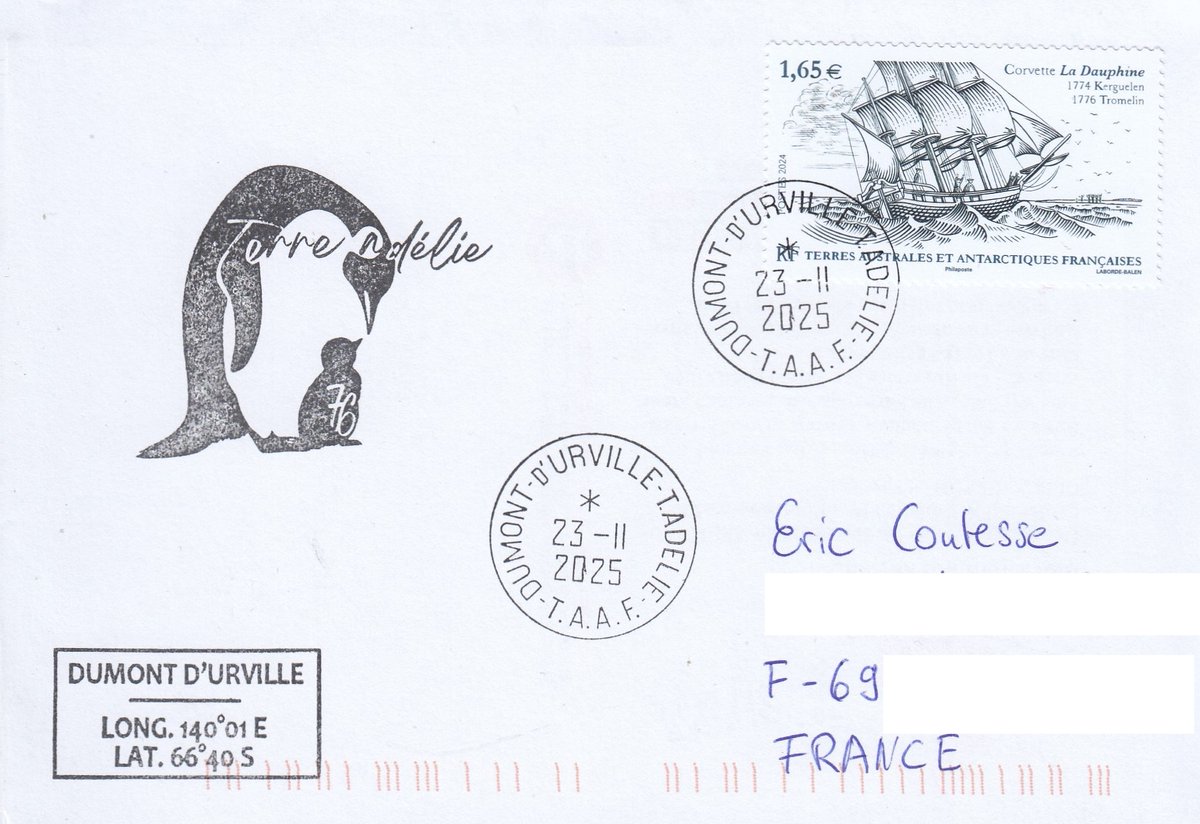 1,65 €
Corvette La Dauphine
1774 Kerguelen
1776 Tromelin
2024
RF TERRES AUSTRALES ET ANTARCTIQUES FRANÇAISES
Philaposte
LABORDE-BALEN
DUMONT-D'URVILLE-T.ADELIE-T.A.A.F.-
*
23-11
2025
Terre adélie
76
DUMONT-D'URVILLE-T.ADELIE-T.A.A.F.-
*
23-11
2025
Eric Coutesse
F-69
FRANCE
DUMONT D'URVILLE
LONG. 140°01 E
LAT. 66°40 S